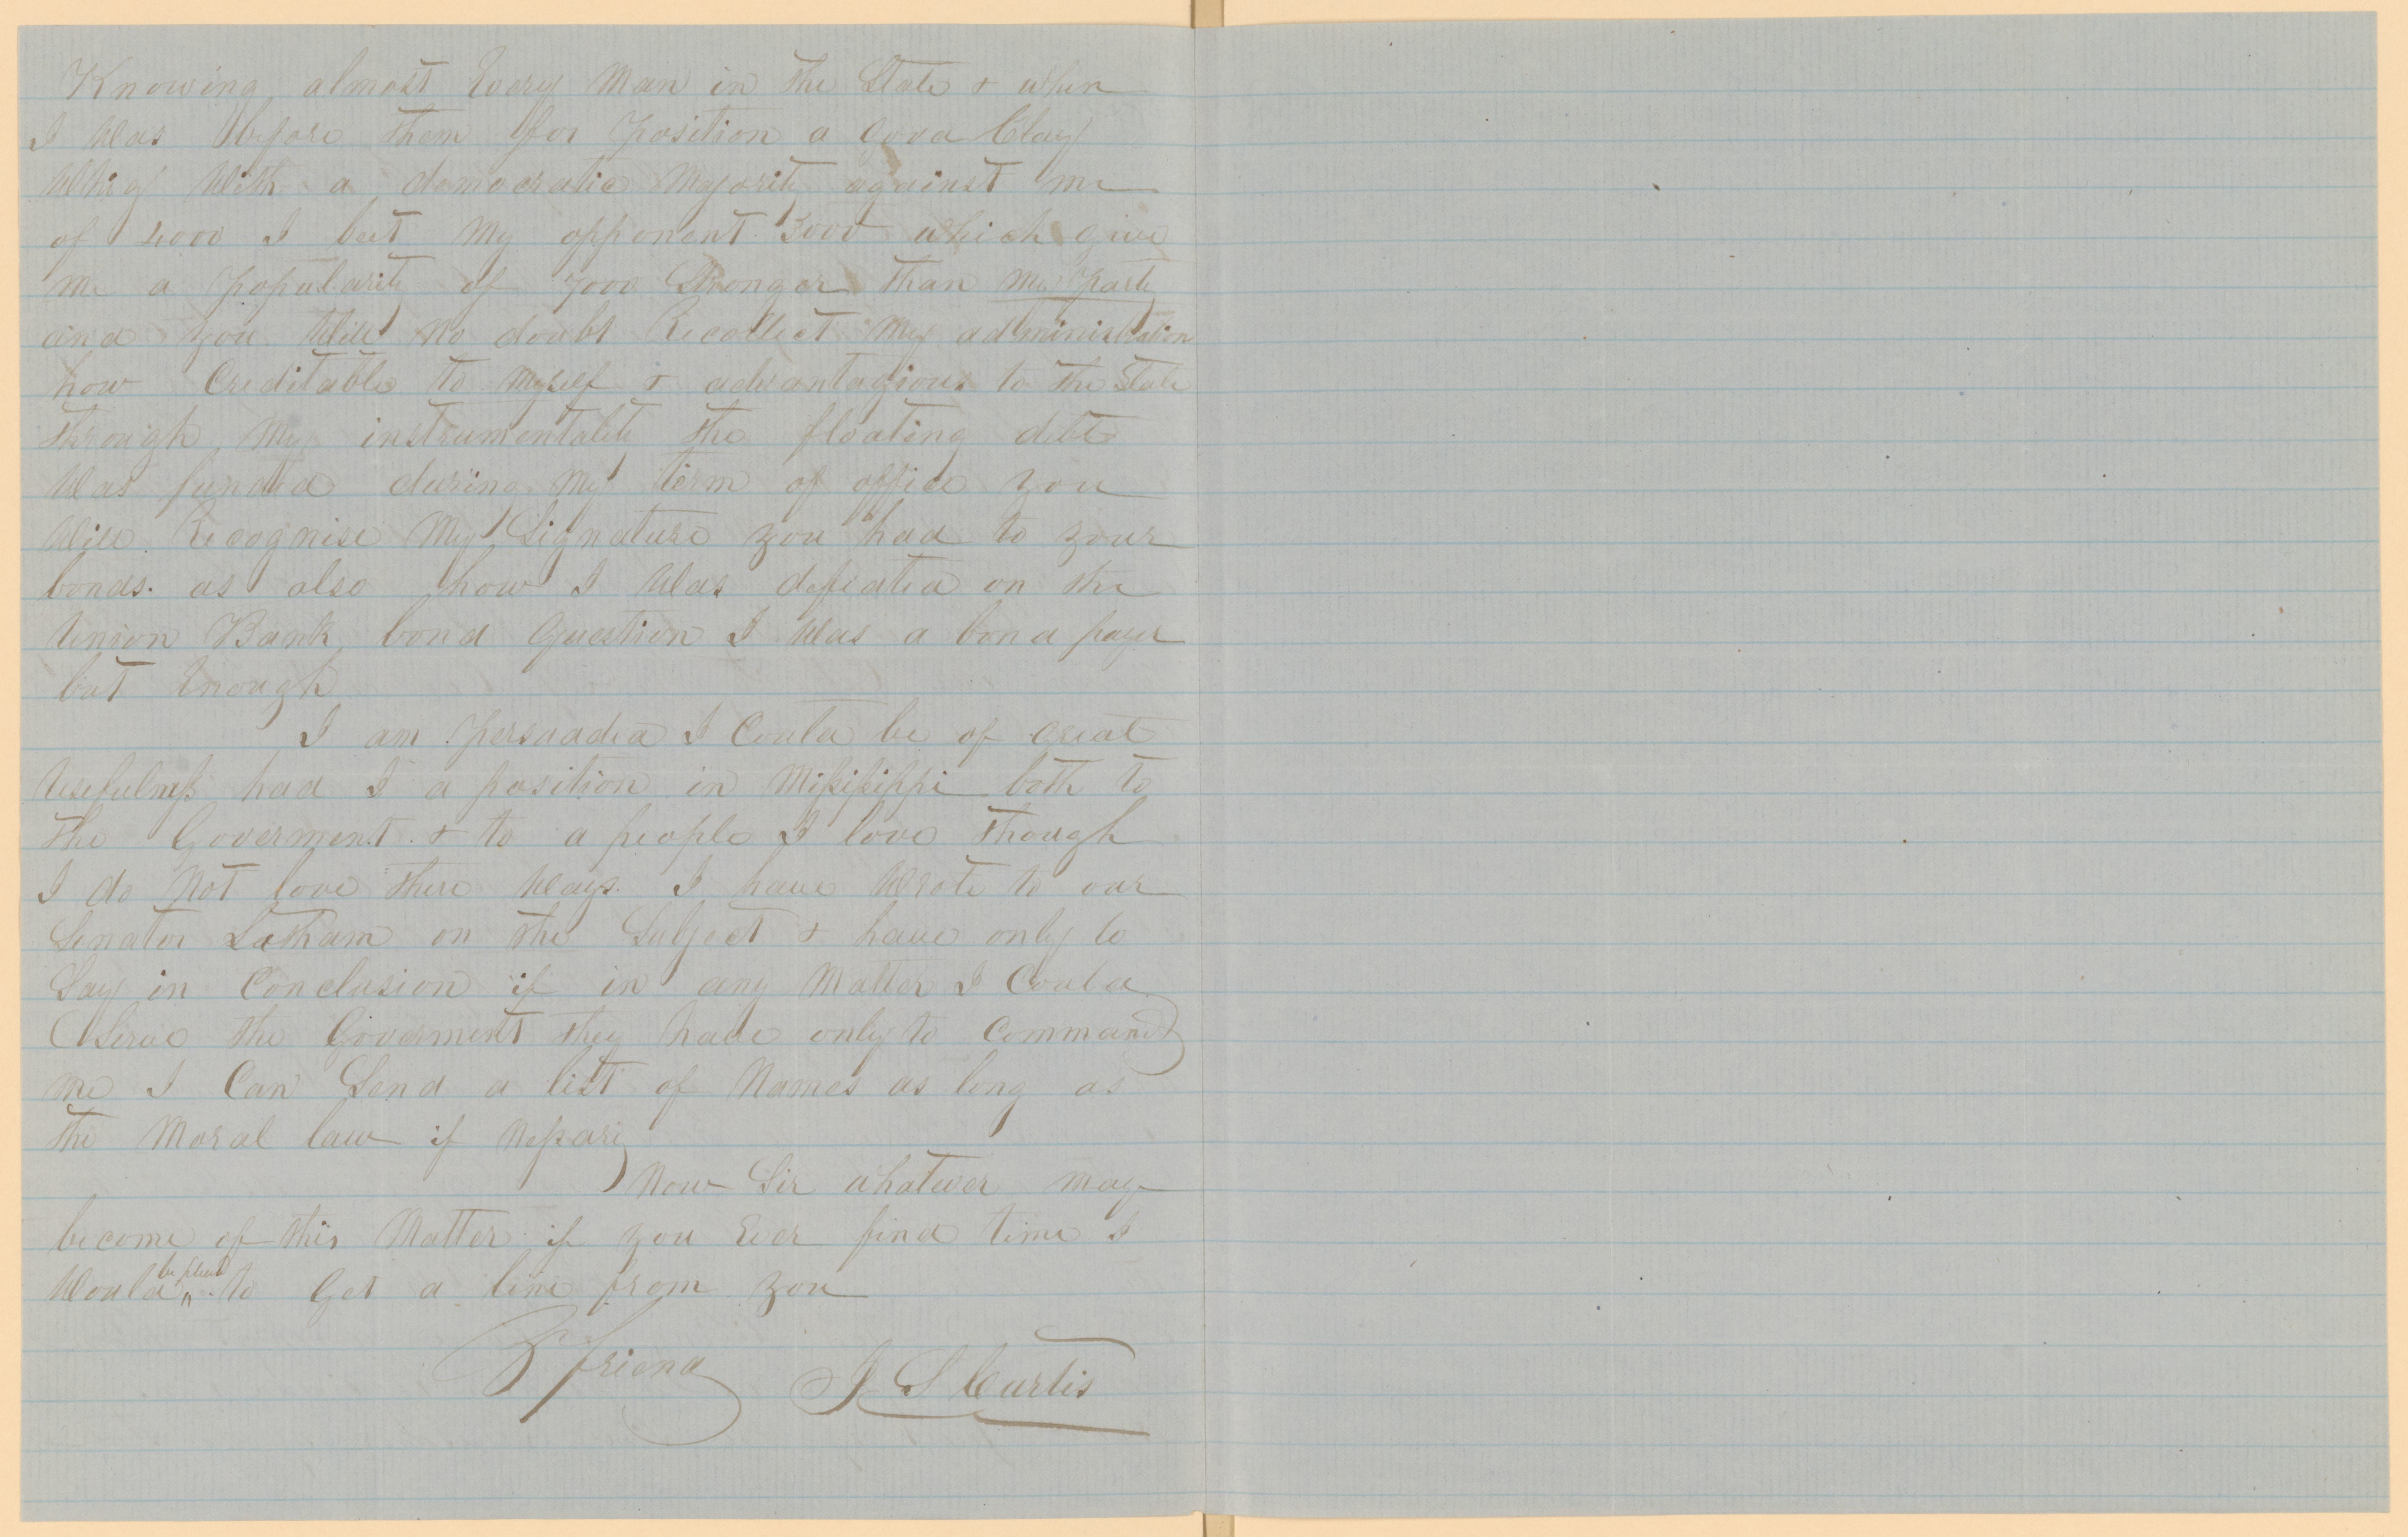 Knowing almost Every Man in the State & when
I Was before them for position a Good Clay
Whig With a democratic Majority against me
of 4000 I beet My opponent 3000 which give
me a popularity of 7000 Stronger than My party
and you Will No doubt Recollect My administration
how Creditable to Myself & advantagious to the State
through My instrumentality the floating debt
Was funded during My term of office you
Will Recognise My Signature you had to your
bonds. as also how I Was defeated on the
Union Bank bond Question I Was a bond payer
but Enough
I am persuaded I Could be of Great
Usefulness had I a position in Mississippi both to
the Goverment & to a people I love though
I do Not love there Ways. I have Wrote to our
Senator Latham on the Subject & have only to
Say in Conclusion if in any Matter I Could
Serve the Goverment they have only to Command
me I Can Send a list of Names as long as
the Moral law if Nessary
Now Sir whatever may
become of this Matter if you Ever find time I
Would be pleasd to Get a line from you
Yr friend J S Curtis